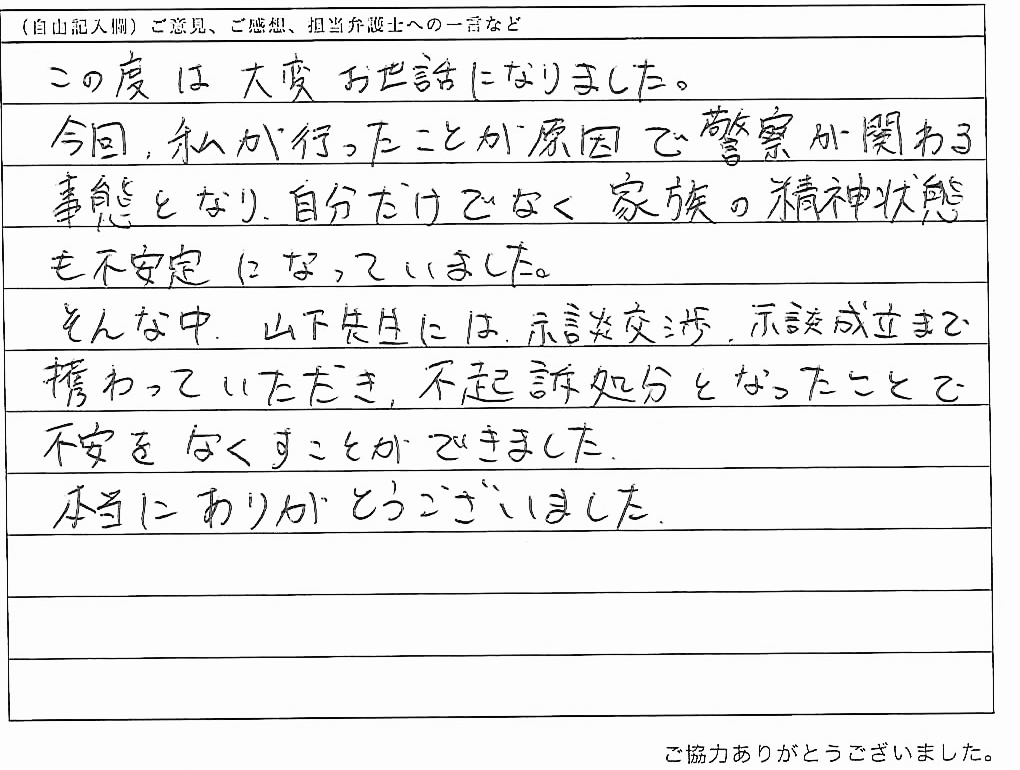 (自由記入欄) ご意見、ご感想、担当弁護士への一言など
この度は大変お世話になりました。
今回、私が行ったことが原因で警察が関わる
事態となり、自分だけでなく家族の精神状態
も不安定になっていました。
そんな中、山下先生には、示談交渉、示談成立まで
携わっていただき、不起訴処分となったことで
不安をなくすことができました。
本当にありがとうございました。
ご協力ありがとうございました。